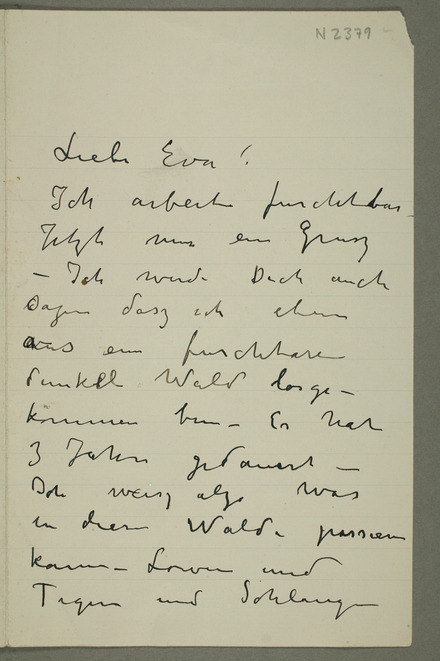 N 2379
Liebe Eva!
Ich arbeite furchtbar –
Jetzt nur ein Grusz
– Ich werde Dich auch
sagen dasz ich eben
aus ein furchtbaren
dunkel Wald losge–
kommen bin – Es hat
3 Jahre gedauert –
Ich weisz also was
in diesen Walde passieren
kann – Löwen und
Tigern und Schlangen